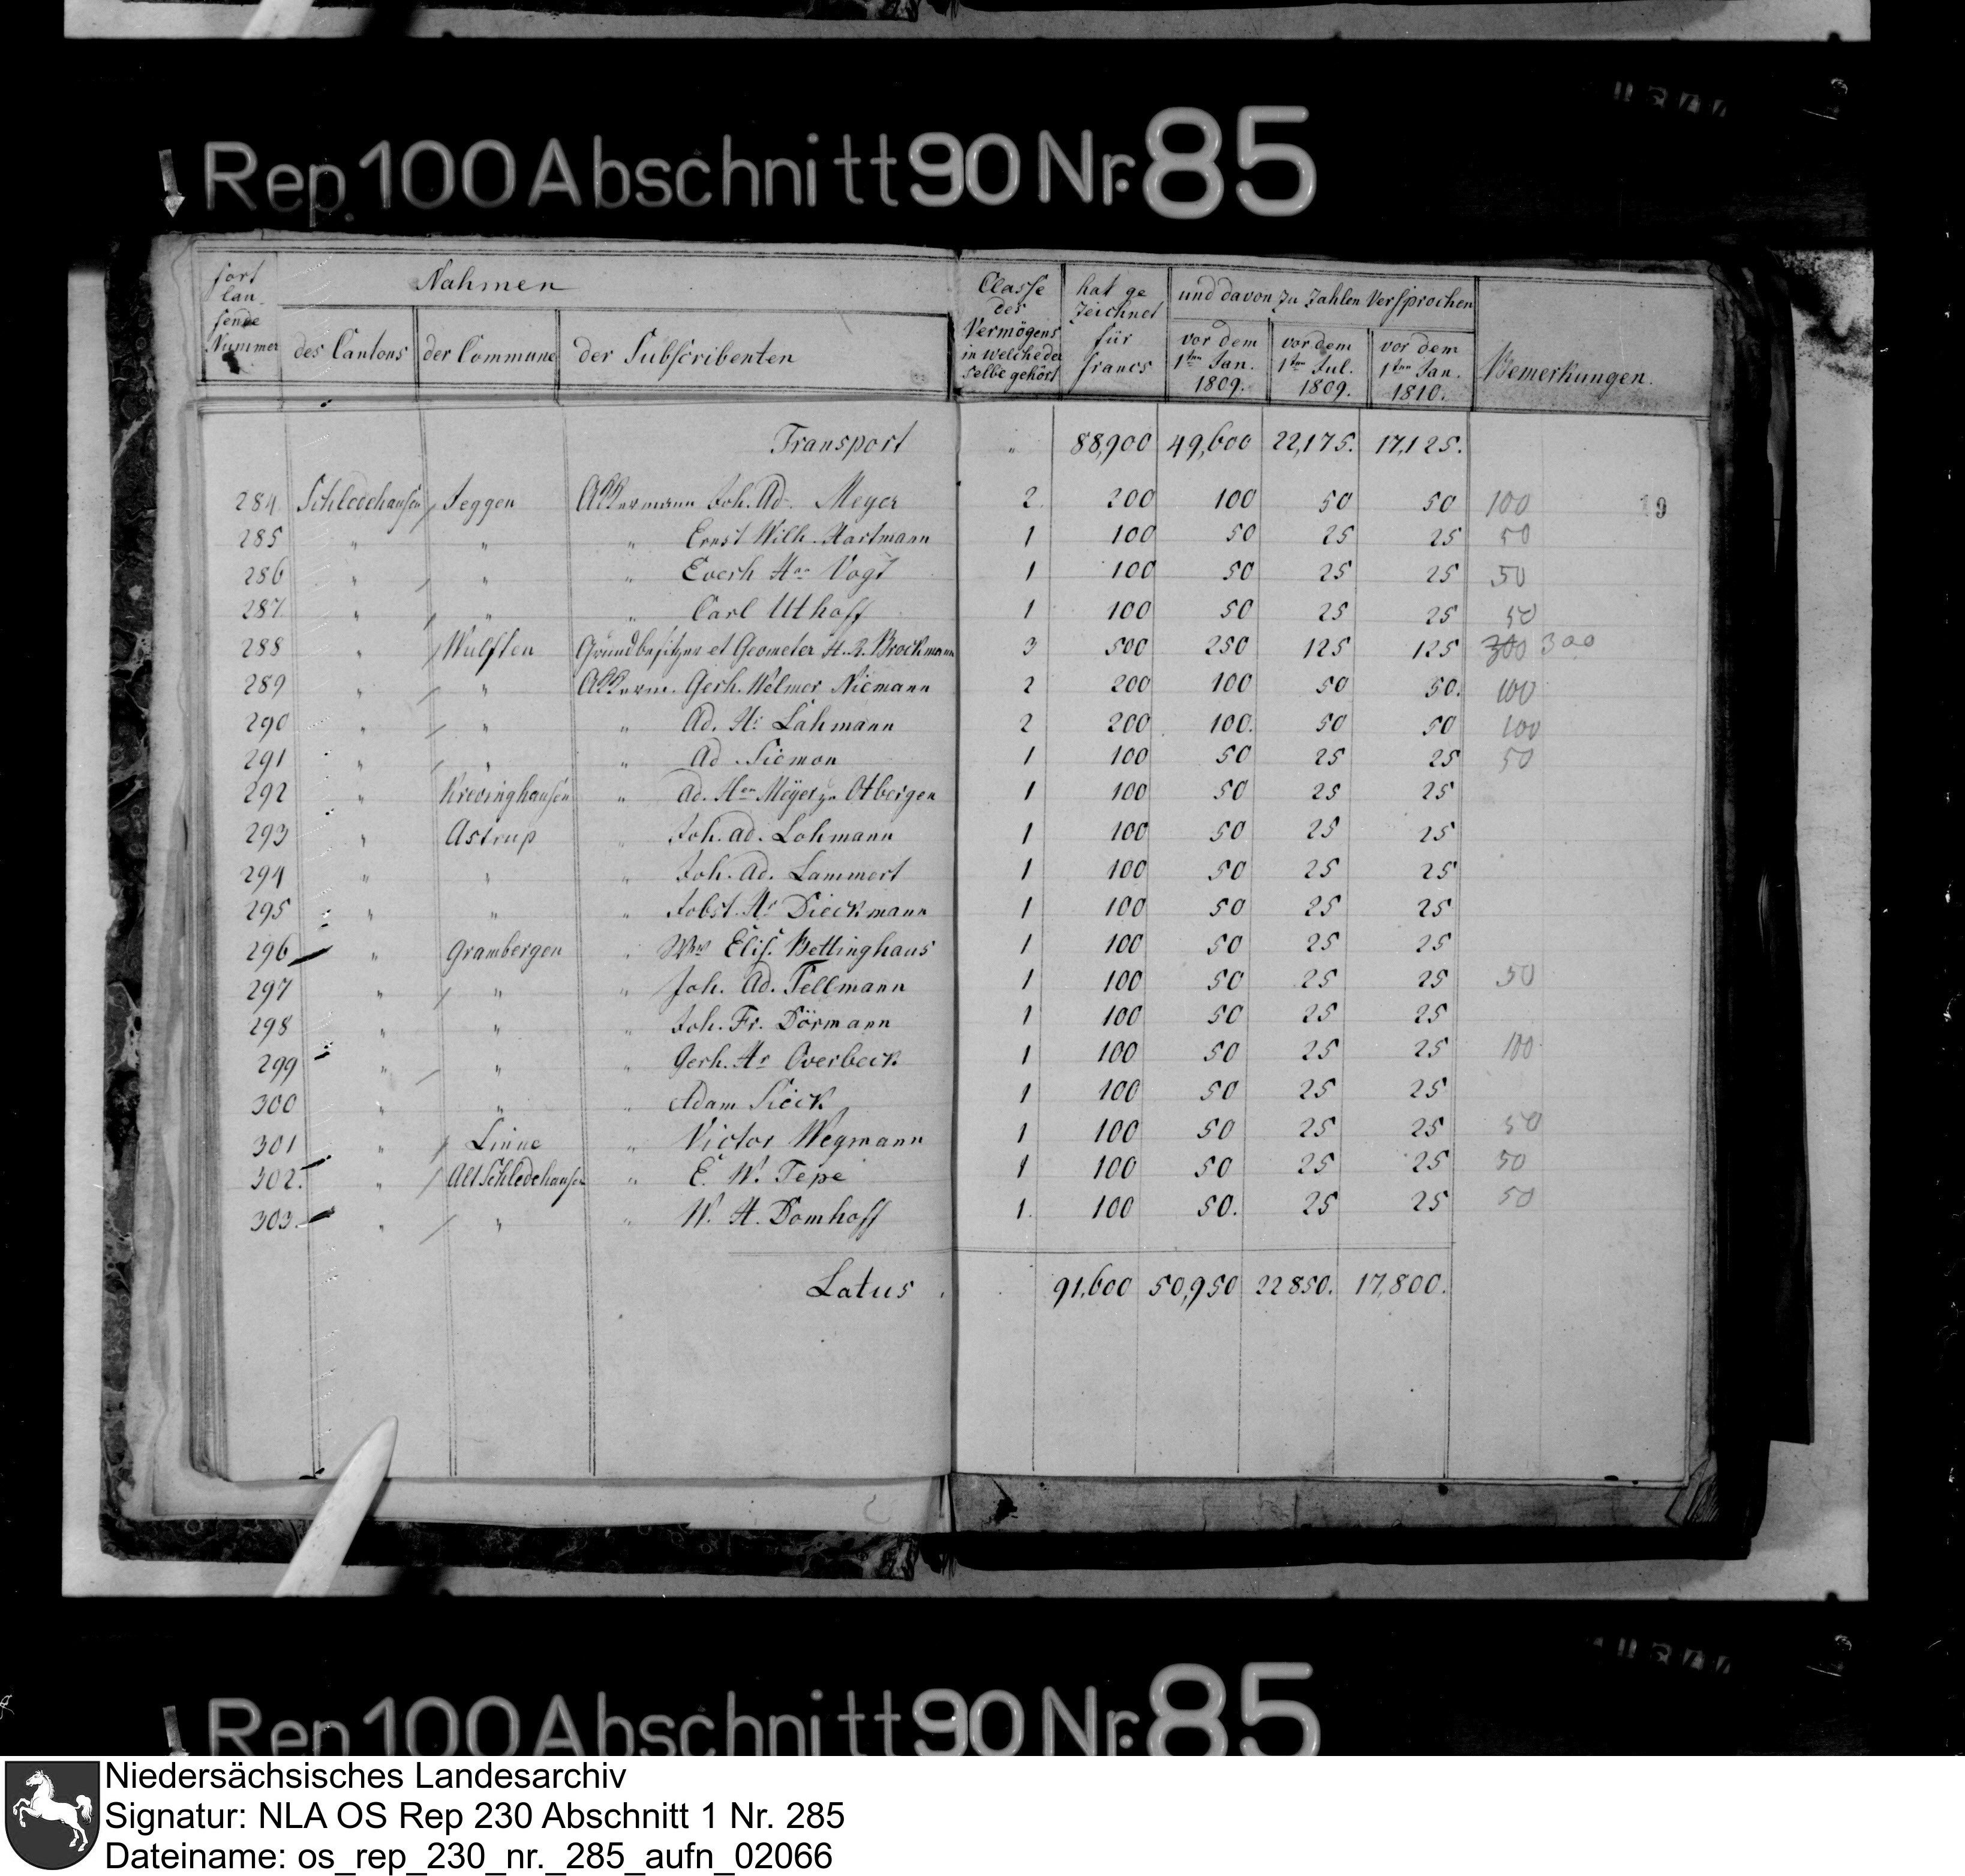 Rep. 100 Abschnitt 90 Nr. 85
fort
lau-
fende
Nummer
Nahmen
des Cantons
der Commune
der Subscribenten
Classe
des
Vermögens
in welche der
selbe gehört
hat ge
zeichnet
für
francs
und davon zu zahlen versprochen
vor dem
1ten Jan.
1809.
vor dem
1ten Jul.
1809.
vor dem
1ten Jan.
1810.
Bemerkungen.
Transport " 88,900 49,600 22,175. 17,125.
284 Schledehausen Jeggen Ackermann Joh. Ad. Meyer 2. 200 100 50 50 100
19
285 " " " Ernst Wilh. Hartmann 1 100 50 25 25 50
286 " " " Everh Hr Vogt 1 100 50 25 25 50
287 " " " Carl Uthoff 1 100 50 25 25 50
288 " Wulften Grundbesitzer et Geometer H. Brockmann 3 500 250 125 125 300 300
289 " " Ackerm. Gerh. Welmer Niemann 2 200 100 50 50. 100
290 " " " Ad. Hr Lahmann 2 200 100. 50 50 100
291 " " " Ad Siemon 1 100 50 25 25 50
292 " Krevinghausen " Ad. Hen Meyer zu Otbergen 1 100 50 25 25
293 " Astrup " Joh. Ad. Lohmann 1 100 50 25 25
294 " " " Joh. Ad. Lammert 1 100 50 25 25
295 " " " Jobst. Hr Dieckmann 1 100 50 25 25
296 " Grambergen " Ww Elis. Bettinghaus 1 100 50 25 25
297 " " " Joh. Ad. Tellmann 1 100 50 25 25 50
298 " " " Joh. Fr. Dörmann 1 100 50 25 25
299 " " " Gerh. Hr Overbeck 1 100 50 25 25 100
300 " " " Adam Sieck 1 100 50 25 25
301 " Linne " Victor Wegmann 1 100 50 25 25 50
302. " Alt Schledehausen " E. W. Tepe 1 100 50 25 25 50
303. " " " W. H. Domhoff 1. 100 50. 25 25 50
Latus . 91,600 50,950 22850. 17,800.
Rep 100 Abschnitt 90 Nr. 85
Niedersächsisches Landesarchiv
Signatur: NLA OS Rep 230 Abschnitt 1 Nr. 285
Dateiname: os_rep_230_nr._285_aufn_02066